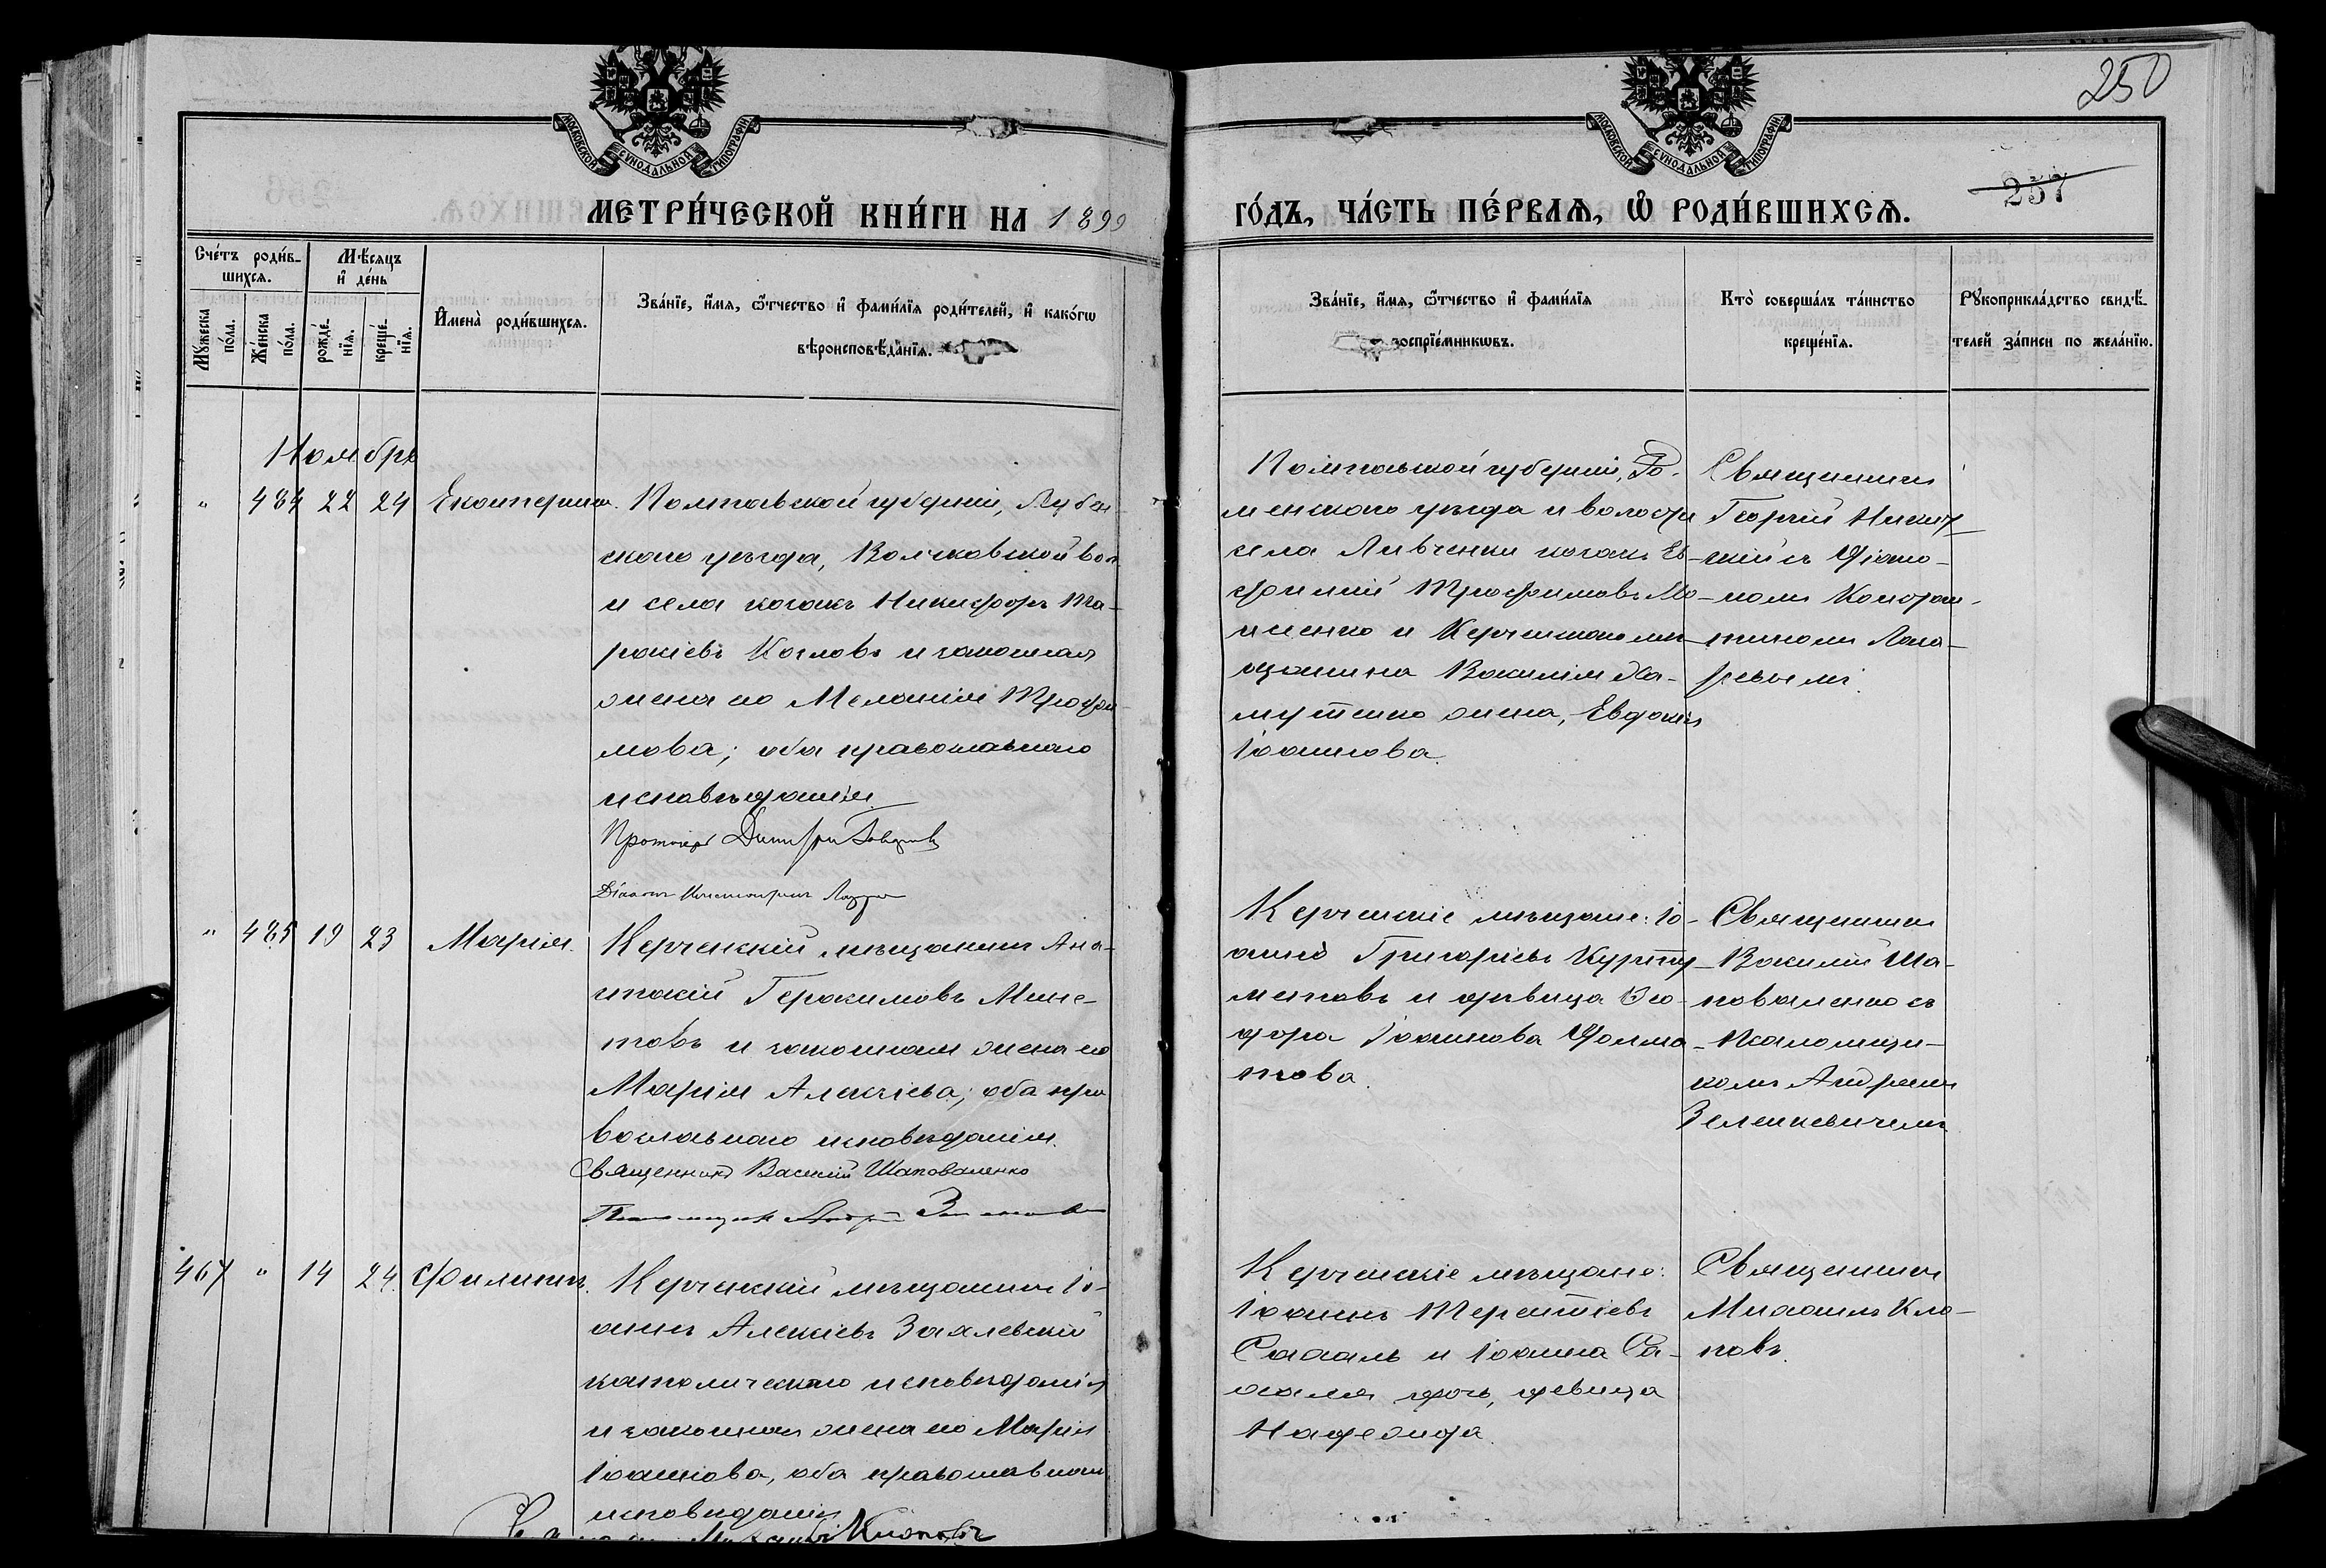 250
257
МОСКОВСКОЙ СѴНОДАЛЬНОЙ ТИПОГРАФІИ
МОСКОВСКОЙ СѴНОДАЛЬНОЙ ТИПОГРАФІИ
МЕТРИ́ЧЕСКОЙ КНИ́ГИ НА 1899
ГО́ДЪ, ЧА́СТЬ ПЕ́РВАѦ, Ѡ РОДИ́ВШИХСѦ.
Сче́тъ роди́в-
шихсѧ.
Мꙋ́жеска
по́ла.
Же́нска
по́ла.
Мѣ́сѧцъ
и҆ де́нь
рожде́-
нїѧ.
креще́-
нїѧ.
И҆мена̀ роди́вшихсѧ.
Зва́нїе, и҆́мѧ, ѻ҆́тчество и҆ фами́лїѧ роди́телей, и҆ како́гѡ
вѣроисповѣ́данїѧ.
Зва́нїе, и҆́мѧ, ѻ҆́тчество и҆ фами́лїѧ
воспрїе́мникѡвъ.
Кто̀ соверша́лъ та́инство
креще́нїѧ.
Рꙋкоприкла́дство свидѣ́-
телей за́писи по жела́нїю.
Ноябрь
" 484 22 24 Екатерина.
Полтавской губерніи, Лубен
скаго уѣзда, Волчковской вол.
и села козакъ Никифоръ Та-
расіевъ Козловъ и законная
жена его Меланія Трофи
мова; оба православнаго
исповѣданія.
Протоіерей Димитрій
Діаконъ Константинъ Лазарев
Полтавской губерніи, Ро-
менскаго уѣзда и волости
села Ливченки козакъ Ев-
фимій Трофимовъ Мо-
исенко и Керченскаго мѣ-
щанина Василія Ха-
мутенко жена, Евдокія
Іоаннова.
Священникъ
Георгій
скій съ Діако-
номъ Констан-
тиномъ Лаза-
ревымъ.
" 485 19 23 Марія.
Керченскій мѣщанинъ Ана-
толій Герасимовъ
товъ и законная жена его
Марія Алексіева; оба пра
вославнаго исповѣданія.
Священникъ Василій Шаповаленко
Псаломщикъ Андрей
Керченскіе мѣщане: Іо-
аннъ Григоріевъ Курту
метовъ и дѣвица Ѳео-
дора Іоаннова Долма-
това.
Священникъ
Василій Ша-
поваленко съ
Псаломщи-
комъ Андреемъ
Зеленкевичемъ
467 " 14 24. Филиппъ.
Керченскій мѣщанинъ Іо-
аннъ Алексіевъ Захлевскій
католическаго исповѣданія
и законная жена его Марія
Іоаннова, оба православнаго
исповѣданія
Священникъ Михаилъ Клоповъ
Керченскіе мѣщане:
Іоаннъ Терентіевъ
и Іоанна Са-
дочь, дѣвица
Надежда.
Священникъ
Михаилъ Кло-
повъ.